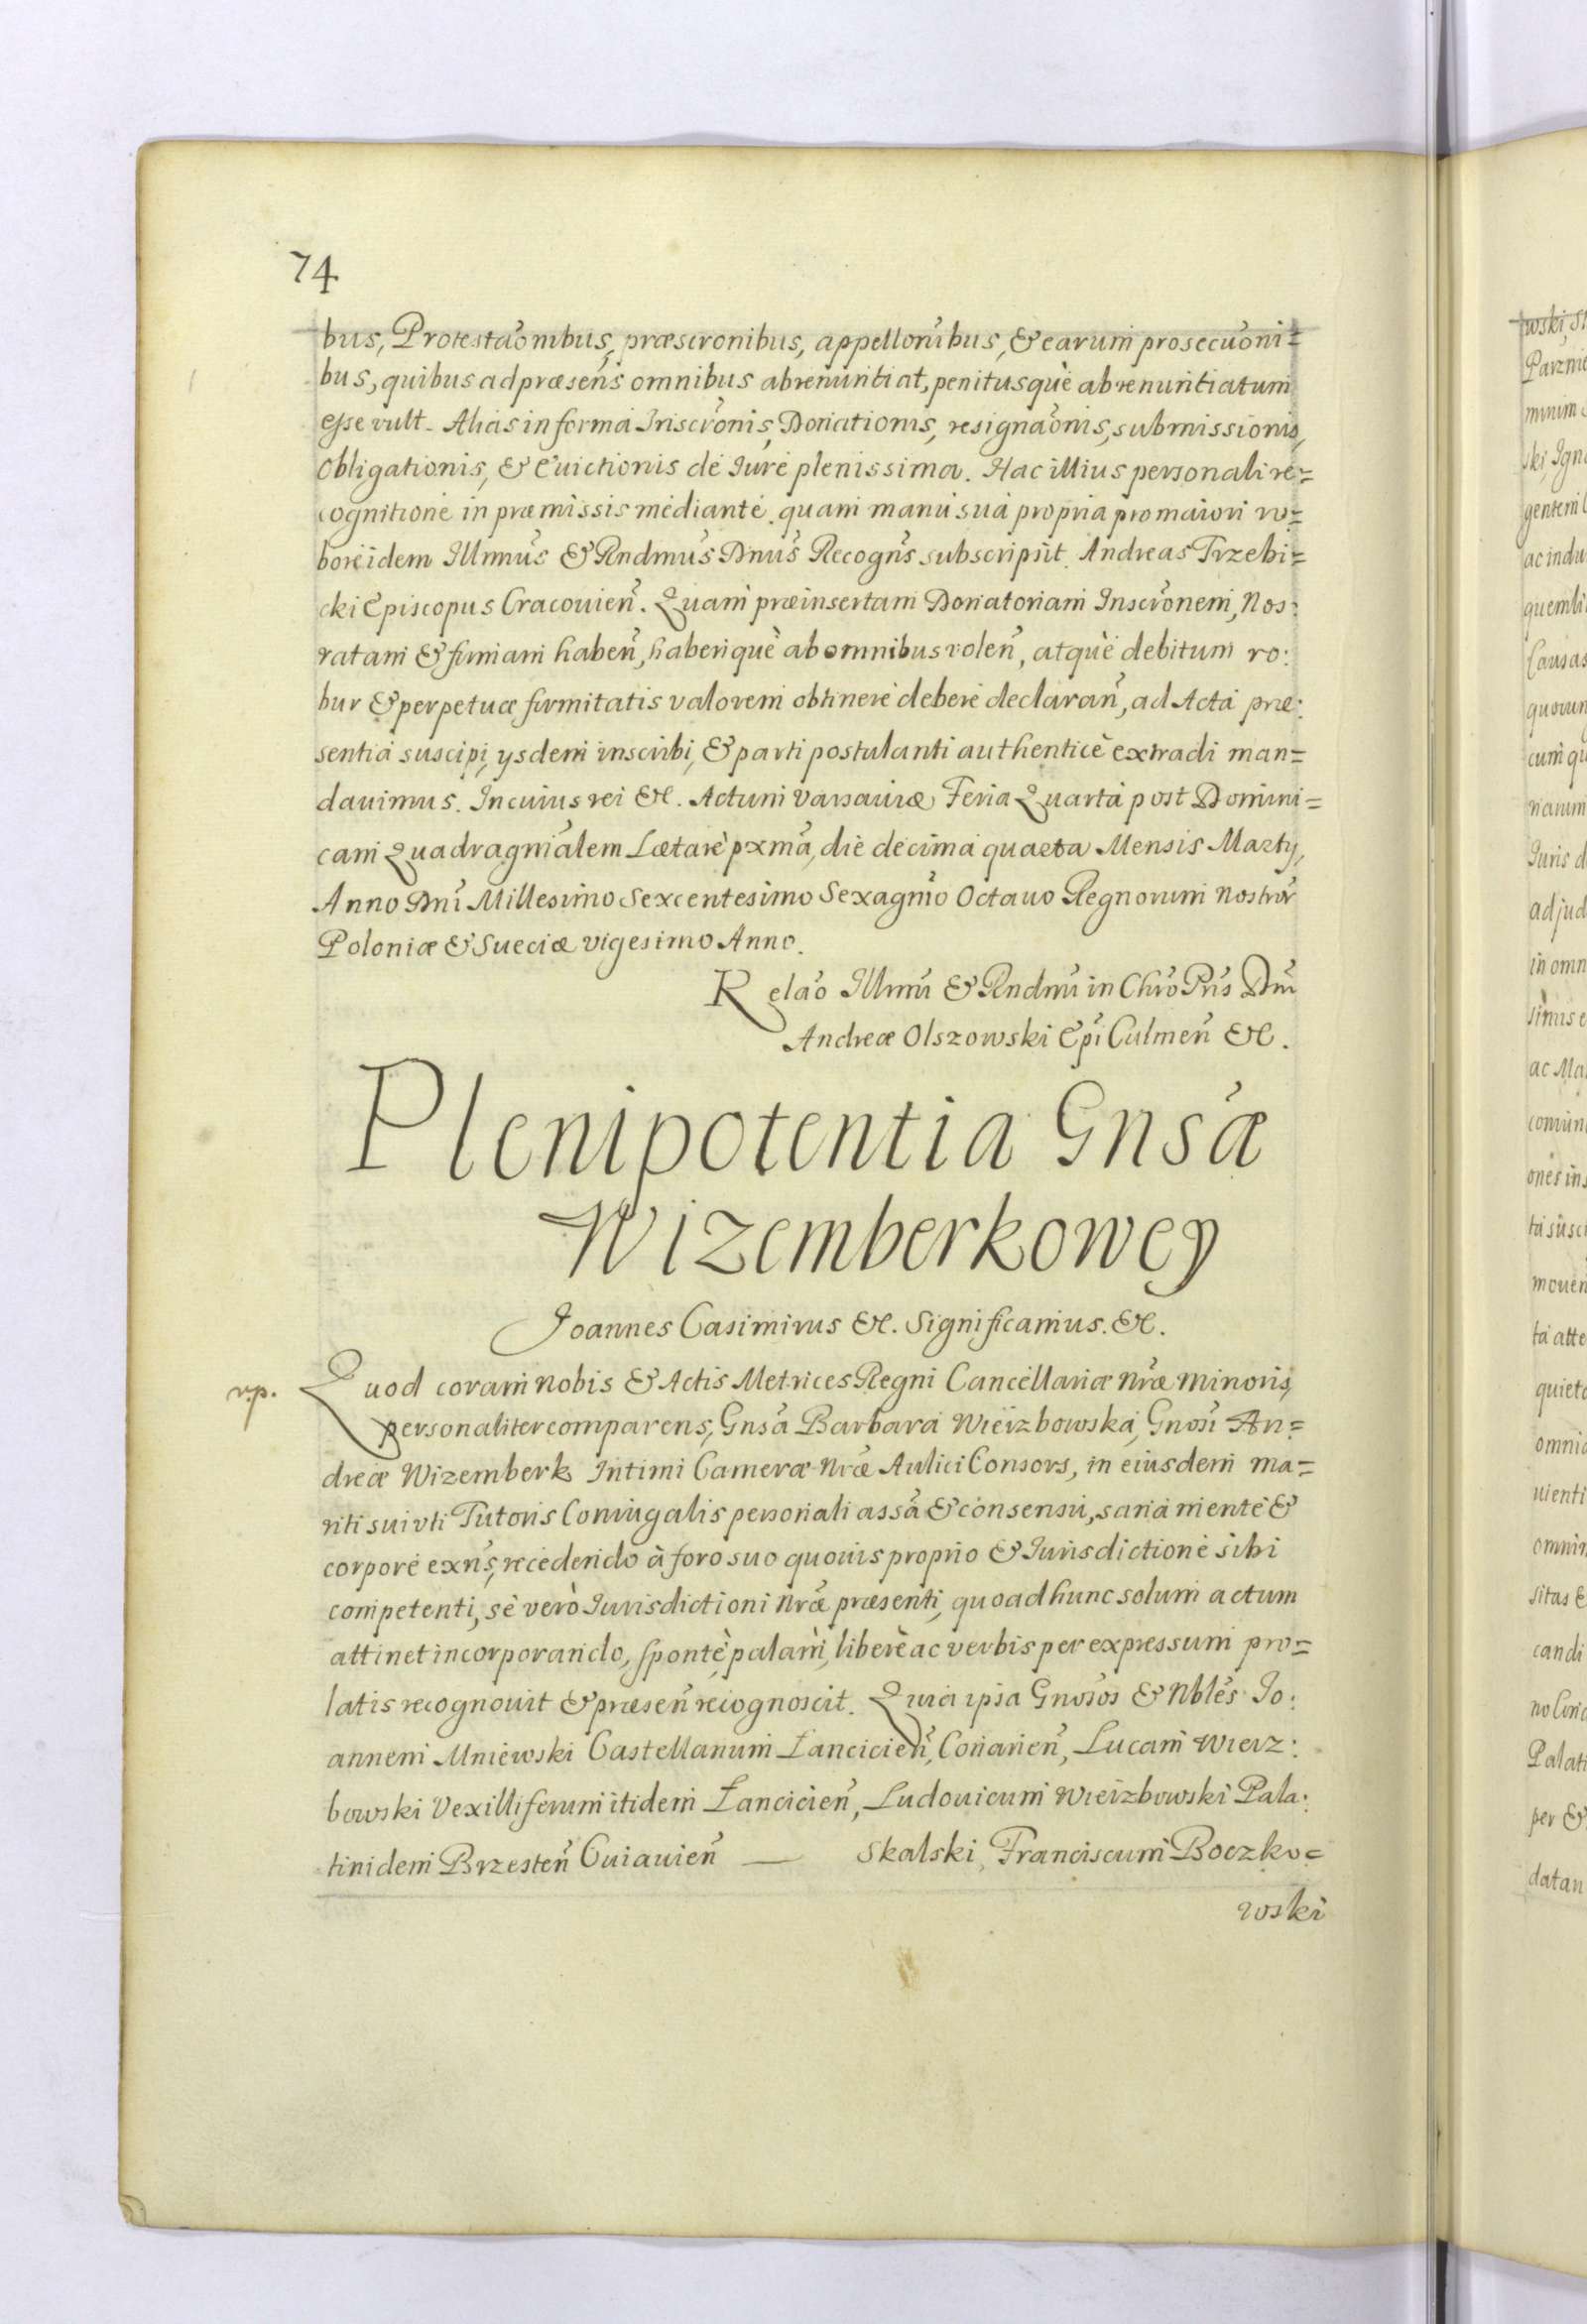 74
bus, Protestaõnibus, præscronibus, appellonibus, & earum prosecuoni=
bus, quibus ad præsens omnibus abrenuntiat, penitusquè abrenuntiatum
esse vult. Alias in forma Inscronis, Donationis, resignaõnis, submissionis,
Obligationis, & Euictionis de Iure plenissima. Hac illius personali re=
cognitione in præmissis mediante. quam manu sua propria pro maiori ro=
bore idem Illmus & Rndmus Dnus Recogns subscripsit. Andreas Trzebi=
cki Episcopus Cracouien. Quam præinsertam Donatoriam Inscronem, Nos:
ratam & firmam haben, haberiquè ab omnibus volen, atquè debitum ro:
bur & perpetuæ firmitatis valorem obtinere debere declaran, ad Acta præ:
sentia suscipi, ysdem inscribi, & parti postulanti authenticè extradi man=
dauimus. In cuius rei &c. Actum Varsauiæ Feria Quarta post Domini=
cam Quadragnialem Lætarè pxma, die decima quarta Mensis Marty,
Anno Dni Millesimo Sexcentesimo Sexagmo Octauo Regnorum nostror
Poloniæ & Sueciæ vigesimo Anno.
Relaõ Illmi & Rndmi in Chro Pris Dni
Andreæ Olszowski Epi Culmen &c.
Plenipotentia Gnsæ
Wizemberkowey
Joannes Casimirus &c. Significamus. &c.
rp. Quod coram nobis & Actis Metrices Regni Cancellariæ nræ minoris,
personaliter comparens, Gnsa Barbara Wieizbowska, Gnosi An=
dreæ Wizemberk Intimi Cameræ Nræ Aulici Consors, in eiusdem ma=
riti sui vti Tutoris Coniugalis personali assa & consensu, sana mente &
corpore exns, recedendo à foro suo quouis proprio & Iurisdictione sibi
competenti, se verò Iurisdictioni Nræ præsenti, quoad hunc solum actum
attinet incorporando, spontè, palàm, liberè ac verbis per expressum pro=
latis recognouit & præsen recognoscit. Quia ipsa Gnosos & Nbles Jo:
annem Mniewski Castellanum Lancicien, Conarien, Lucam Wierz:
bowski Vexilliferum itidem Lancicien, Ludouicum Wieizbowski Pala:
tinidem Brzesten Cuiauien — Skalski, Franciscum Boczko=
wski